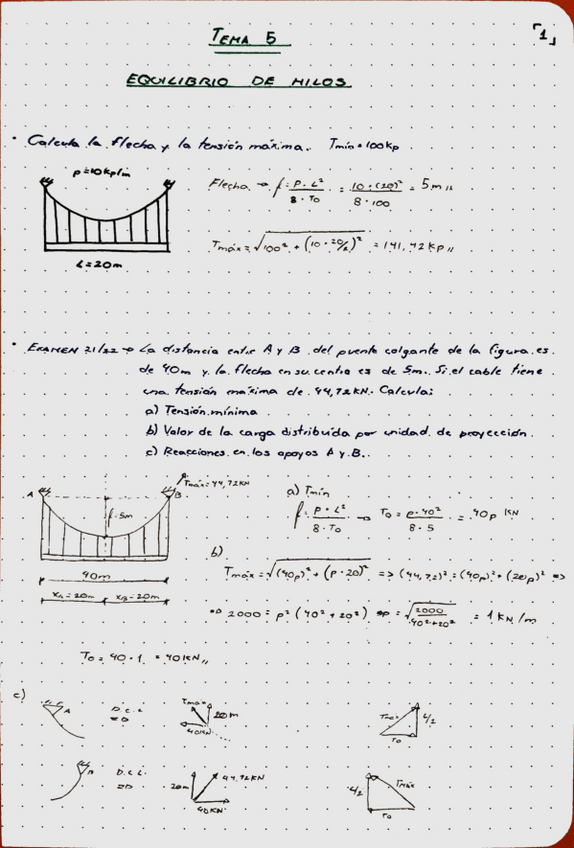 TEMA 5
「1」
EQUILIBRIO DE HILOS
• Calcula la flecha y la tensión máxima. Tmín = 100 kp
p = 10 kp/m
L = 20m
Flecha → f = p · L² / 8 · T0 = 10 · (20)² / 8 · 100 = 5 m //
Tmáx = √100² + (10 · 20/2)² = 141,42 kp //
• EXAMEN 21/22 → La distancia entre A y B del puente colgante de la figura es
de 40m y la flecha en su centro es de 5m. Si el cable tiene
una tensión máxima de 44,72 KN. Calcula:
a) Tensión mínima
b) Valor de la carga distribuida por unidad de proyección.
c) Reacciones en los apoyos A y B.
A
B
Tmáx = 44,72KN
f = 5m
40m
xA = 20m
xB = 20m
a) Tmín
f = p · L² / 8 · T0 → T0 = p · 40² / 8 · 5 = 40p KN
b)
Tmáx = √(40p)² + (p · 20)² => (44,72)² = (40p)² + (20p)² =>
=> 2000 = p² (40² + 20²) => p = √2000 / 40² + 20² = 1 KN/m
T0 = 40 · 1 = 40KN //
c)
A
D.C.L
=>
Tmáx
20m
40KN
Tmáx
L/2
T0
B
D.C.L.
=>
20m
44,72KN
40KN
L/2
Tmáx
T0